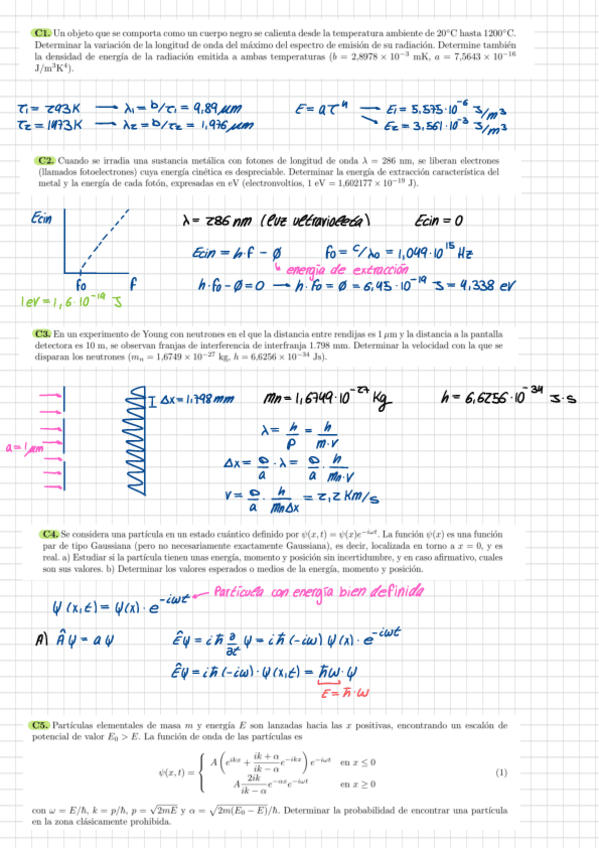 C1. Un objeto que se comporta como un cuerpo negro se calienta desde la temperatura ambiente de 20°C hasta 1200°C.
Determinar la variación de la longitud de onda del máximo del espectro de emisión de su radiación. Determine también
la densidad de energía de la radiación emitida a ambas temperaturas (b = 2,8978 × 10⁻³ mK, a = 7,5643 × 10⁻¹⁶
J/m³K⁴).
T₁ = 293K → λ₁ = b/T₁ = 9,89 μm E = aT⁴ → E₁ = 5.575·10⁻⁶ J/m³
T₂ = 1473K → λ₂ = b/T₂ = 1,976 μm E₂ = 3,561·10⁻³ J/m³
C2. Cuando se irradia una sustancia metálica con fotones de longitud de onda λ = 286 nm, se liberan electrones
(llamados fotoelectrones) cuya energía cinética es despreciable. Determinar la energía de extracción característica del
metal y la energía de cada fotón, expresadas en eV (electronvoltios, 1 eV = 1,602177 × 10⁻¹⁹ J).
Ecin λ = 286 nm (luz ultravioleta) Ecin = 0
Ecin = h·f - ϕ f₀ = c/λ₀ = 1,049·10¹⁵ Hz
↳ energía de extracción
f₀ f h·f₀ - ϕ = 0 → h·f₀ = ϕ = 6,95·10⁻¹⁹ J = 4,338 eV
1eV = 1,6·10⁻¹⁹ J
C3. En un experimento de Young con neutrones en el que la distancia entre rendijas es 1 μm y la distancia a la pantalla
detectora es 10 m, se observan franjas de interferencia de interfranja 1.798 mm. Determinar la velocidad con la que se
disparan los neutrones (mₙ = 1,6749 × 10⁻²⁷ kg, h = 6,6256 × 10⁻³⁴ Js).
Δx = 1,798 mm mn = 1,6749·10⁻²⁷ Kg h = 6,6256·10⁻³⁴ J·s
λ = h/p = h/m·v
a = 1 μm
Δx = D/a · λ = D/a · h/mn·v
v = D/a · h/mnΔx = 2,2 Km/s
C4. Se considera una partícula en un estado cuántico definido por ψ(x,t) = ψ(x)e⁻ⁱωᵗ. La función ψ(x) es una función
par de tipo Gaussiana (pero no necesariamente exactamente Gaussiana), es decir, localizada en torno a x = 0, y es
real. a) Estudiar si la partícula tienen unas energía, momento y posición sin incertidumbre, y en caso afirmativo, cuales
son sus valores. b) Determinar los valores esperados o medios de la energía, momento y posición.
Partícula con energía bien definida
ψ(x,t) = ψ(x)·e^(-iωt)
A) Âψ = aψ Êψ = iħ ∂/∂t ψ = iħ(-iω)ψ(x)·e^(-iωt)
Êψ = iħ(-iω)·ψ(x,t) = ħω·ψ
E = ħ·ω
C5. Partículas elementales de masa m y energía E son lanzadas hacia las x positivas, encontrando un escalón de
potencial de valor E₀ > E. La función de onda de las partículas es
ψ(x,t) = { A(e^(ikx) + (ik+α)/(ik−α) e^(−ikx)) e^(−iωt) en x ≤ 0
A 2ik/(ik−α) e^(−αx) e^(−iωt) en x ≥ 0 (1)
con ω = E/ħ, k = p/ħ, p = √2mE y α = √2m(E₀ − E)/ħ. Determinar la probabilidad de encontrar una partícula
en la zona clásicamente prohibida.